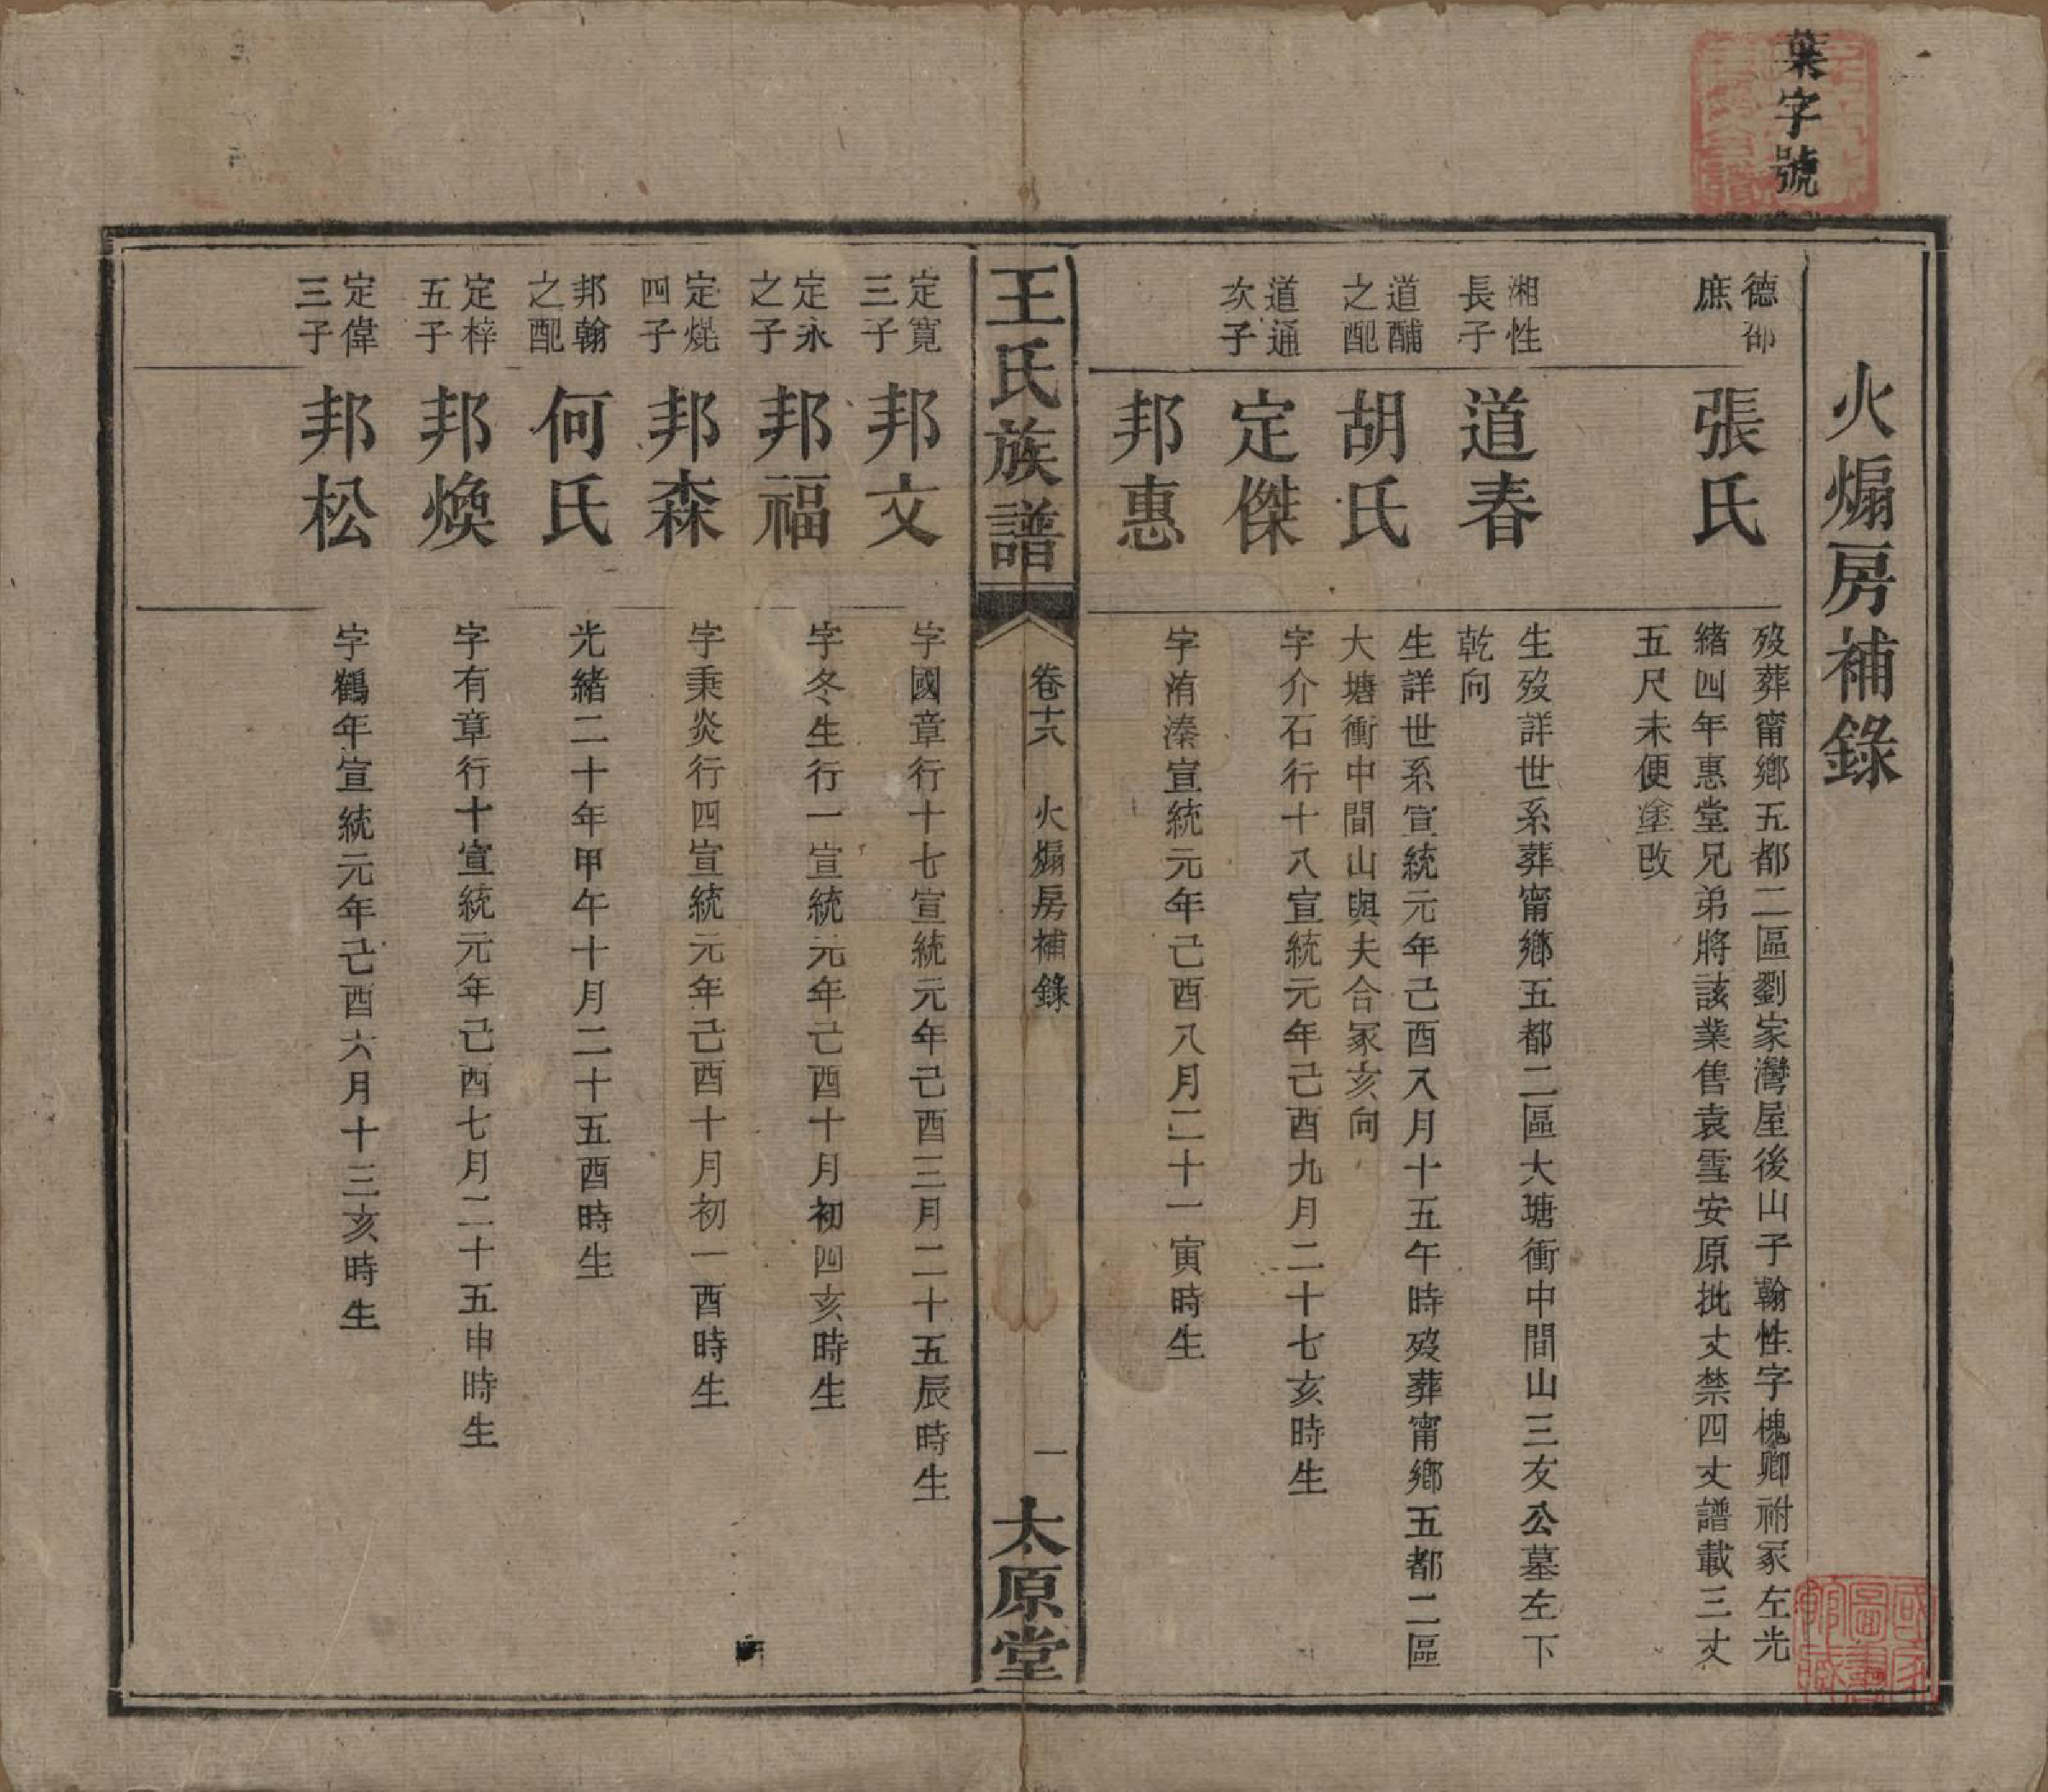 葉字號
火煸房補錄
德邵
庶
張氏
歿葬甯鄉五都二區劉家灣屋後山子翰性字槐卿祔冢左光
緒四年惠堂兄弟將該業售袁雪安原批丈禁四丈譜載三丈
五尺未便塗改
湘性
長子
道春
生歿詳世系葬甯鄉五都二區大塘衝中間山三友公墓左下
乾向
道酺
之配
胡氏
生詳世系宣統元年己酉八月十五午時歿葬甯鄉五都二區
大塘衝中間山與夫合冢亥向
道通
次子
定傑
字介石行十八宣統元年己酉九月二十七亥時生
邦惠
字洧溱宣統元年己酉八月二十一寅時生
王氏族譜
卷十六
火煸房補錄
一
太原堂
定寬
三子
邦文
字國章行十七宣統元年己酉三月二十五辰時生
定永
之子
邦福
字冬生行一宣統元年己酉十月初四亥時生
定焜
四子
邦森
字秉炎行四宣統元年己酉十月初一酉時生
邦翰
之配
何氏
光緒二十年甲午十月二十五酉時生
定梓
五子
邦煥
字有章行十宣統元年己酉七月二十五申時生
定偉
三子
邦松
字鶴年宣統元年己酉六月十三亥時生
國家
圖書
館藏